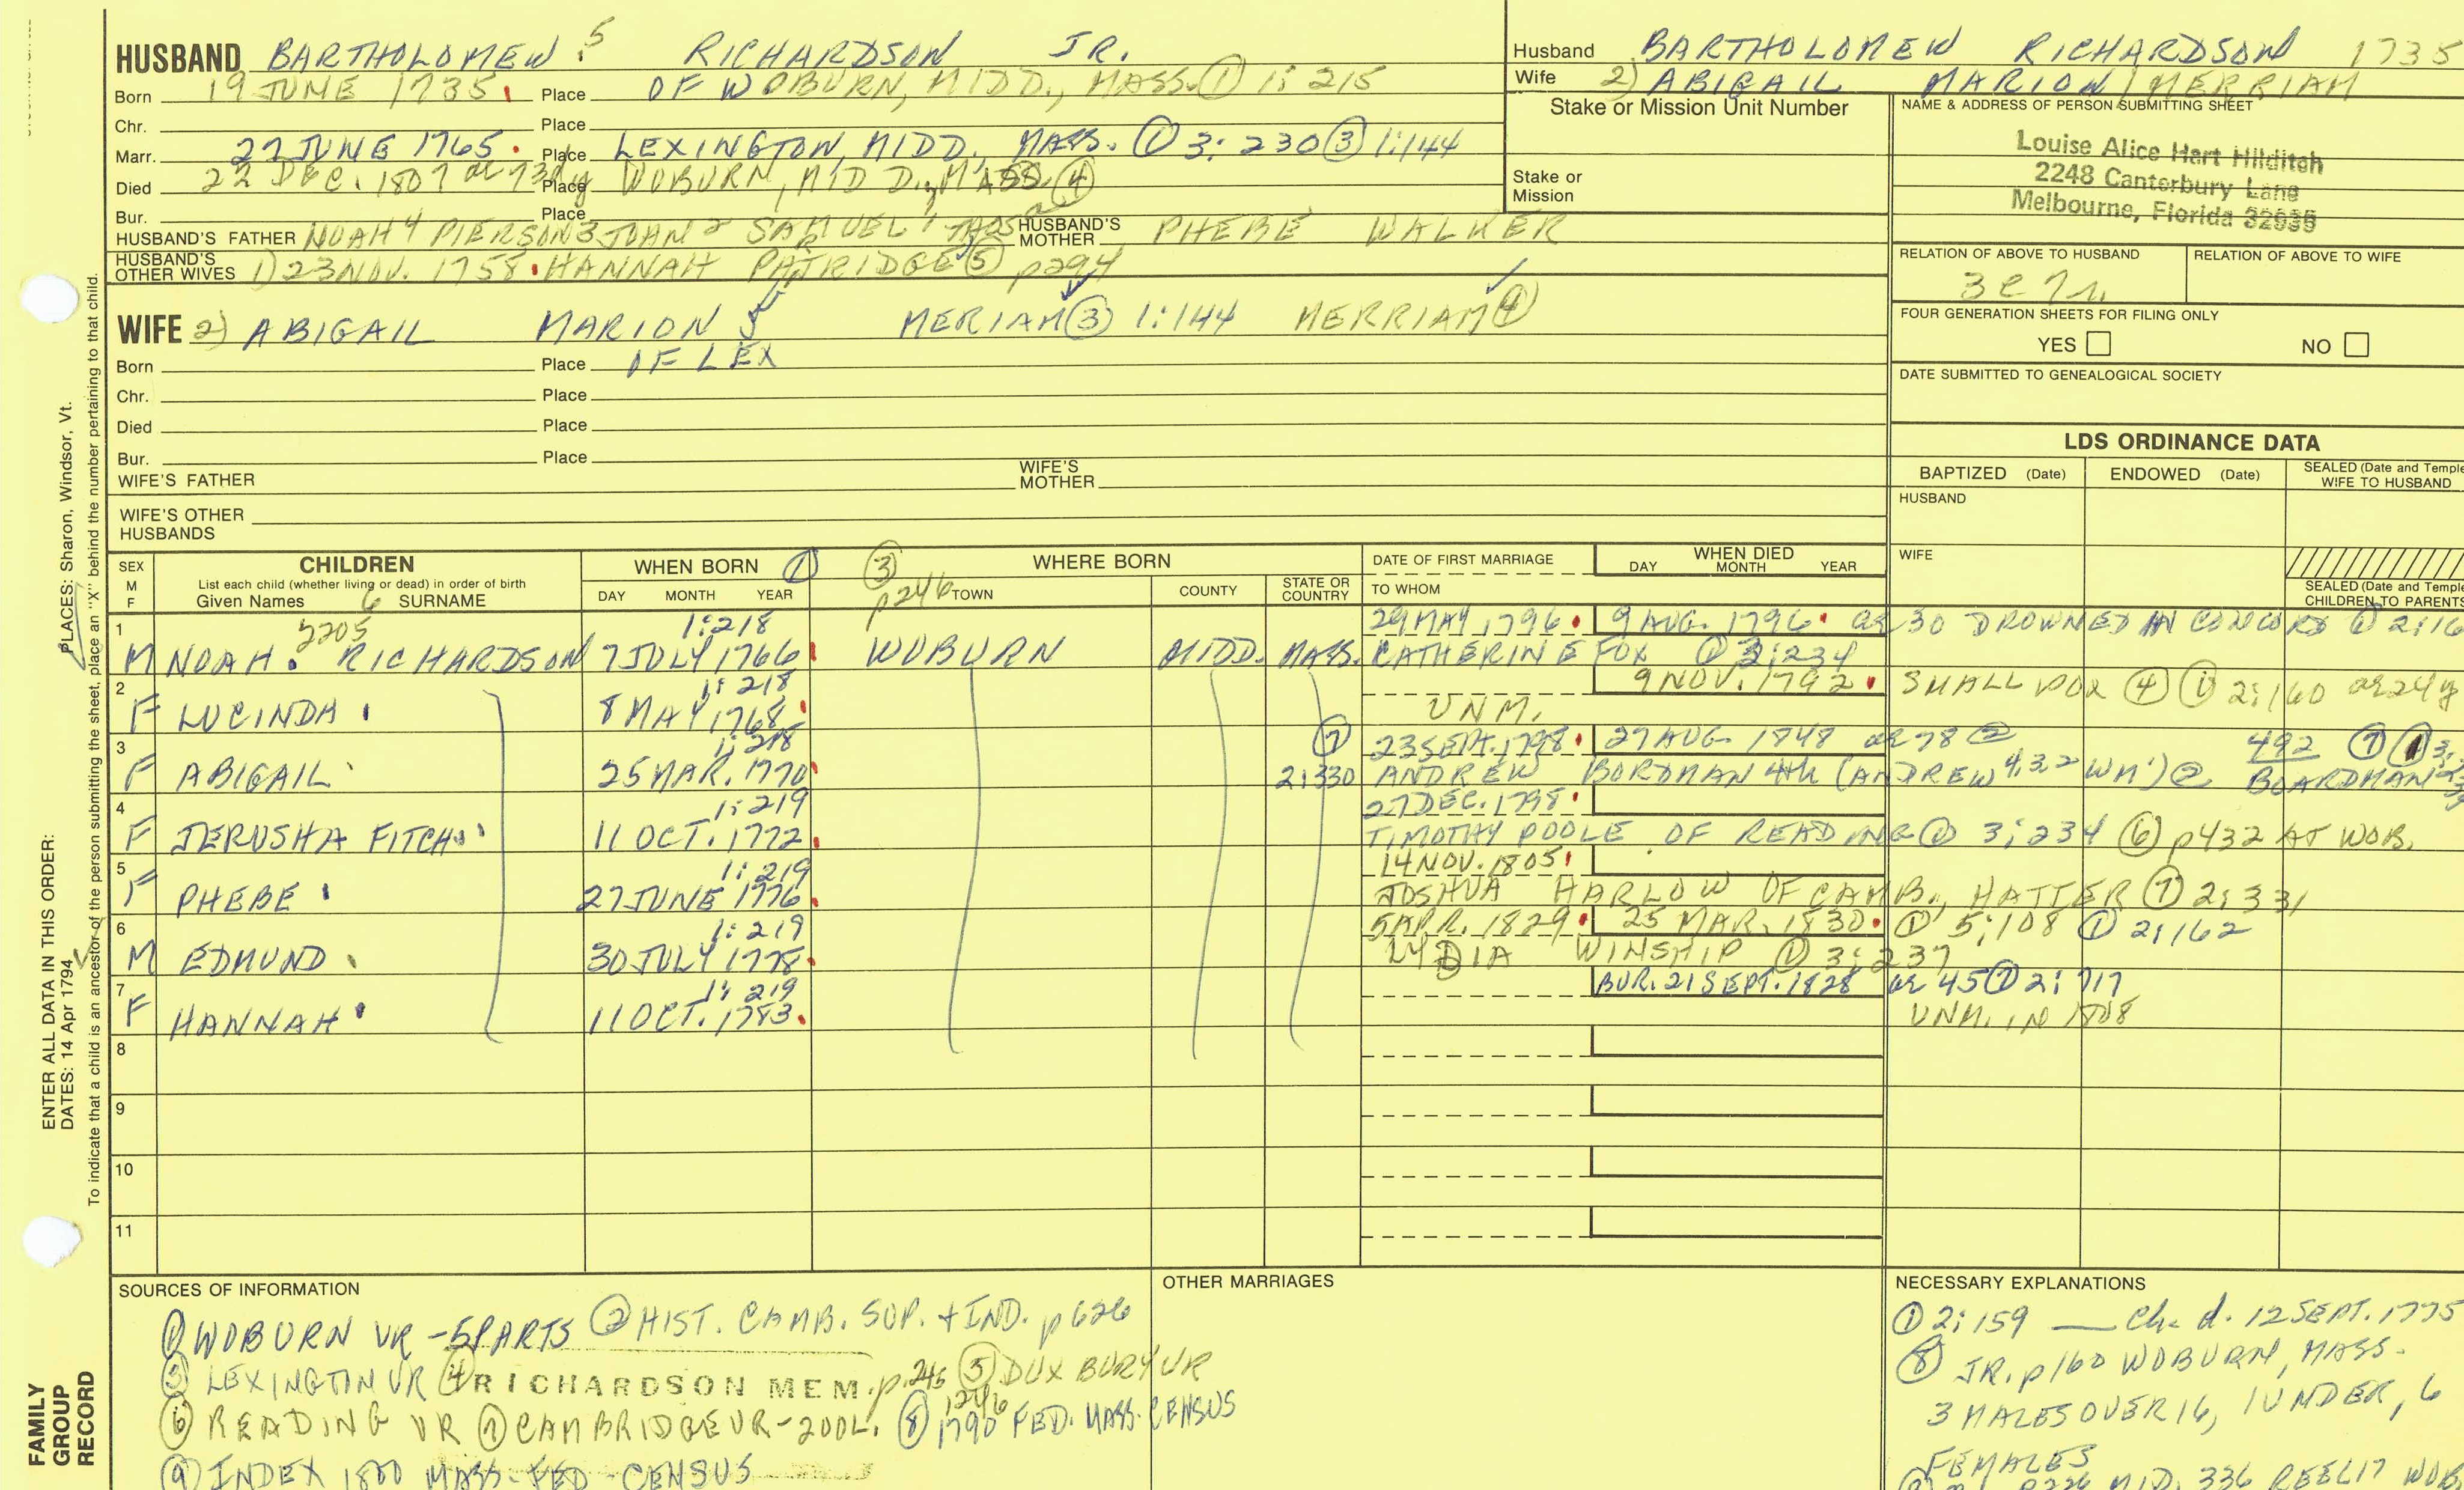 HUSBAND BARTHOLOMEW 5 RICHARDSON JR.
Born 19 JUNE 1735 Place OF WOBURN, MIDD., MASS. ① 1:215
Chr. Place
Marr. 27 JUNE 1765. Place LEXINGTON, MIDD. MASS. ① 3:230 ③ 1:144
Died 22 DEC. 1807 ae 73dy Place WOBURN, MIDD., MASS. ④
Bur. Place
HUSBAND'S FATHER NOAH 4 PIERSON 3 JOHN 2 SAMUEL 1 THOS HUSBAND'S MOTHER PHEBE WALKER
HUSBAND'S OTHER WIVES 1) 23 NOV. 1758. HANNAH PATRIDGE ⑤ p294
R
WIFE 2) ABIGAIL MARION 5 MERIAM ③ 1:144 MERRIAM ④
Born Place OF LEX
Chr. Place
Died Place
Bur. Place
WIFE'S FATHER WIFE'S MOTHER
WIFE'S OTHER HUSBANDS
Husband BARTHOLOMEW RICHARDSON 1735
Wife 2) ABIGAIL MARION/MERRIAM
Stake or Mission Unit Number
Stake or Mission
NAME & ADDRESS OF PERSON SUBMITTING SHEET
Louise Alice Hart Hilditch
2248 Canterbury Lane
Melbourne, Florida 32935
RELATION OF ABOVE TO HUSBAND RELATION OF ABOVE TO WIFE
3 C 7 r.
FOUR GENERATION SHEETS FOR FILING ONLY
YES NO
DATE SUBMITTED TO GENEALOGICAL SOCIETY
LDS ORDINANCE DATA
BAPTIZED (Date) ENDOWED (Date) SEALED (Date and Temple
WIFE TO HUSBAND
HUSBAND
WIFE
SEALED (Date and Temple
CHILDREN TO PARENTS
SEX M F CHILDREN WHEN BORN ① ③ p246 WHERE BORN DATE OF FIRST MARRIAGE WHEN DIED
List each child (whether living or dead) in order of birth
Given Names 6 SURNAME DAY MONTH YEAR TOWN COUNTY STATE OR COUNTRY TO WHOM DAY MONTH YEAR
2205 1:218 29 MAY 1796. 9 AUG. 1796. ae 30 DROWNED IN CONCORD ① 2:16
1 M NOAH. RICHARDSON 7 JULY 1766 WOBURN MIDD. MASS. CATHERINE FOX ① 3:234
1:218 9 NOV. 1792. SMALL POX ④ ① 2:160 ae 24y
2 F LUCINDA 8 MAY 1768. UNM.
1:218 ⑦ 23 SEPT. 1798. 27 AUG. 1848 ae 78 ② 492 ⑦ ① 3:
3 F ABIGAIL 25 MAR. 1770 2:330 ANDREW BORDMAN 4th (ANDREW 4,3,2 WM 1) ② BOARDMAN
1:219 27 DEC. 1798.
4 F JERUSHA FITCH 11 OCT. 1772. TIMOTHY POOLE OF READING ① 3:234 ⑥ p432 AT WOB.
1:219 14 NOV. 1805.
5 F PHEBE 27 JUNE 1776. JOSHUA HARLOW OF CAMB., HATTER ⑦ 2:331
1:219 5 APR. 1829. 25 MAR. 1830. ① 5:108 ① 2:162
6 M EDMUND 30 JULY 1778. LYDIA WINSHIP ① 3:237
1:219 BUR. 21 SEPT. 1828 ae 45 ⑦ 2:717
7 F HANNAH 11 OCT. 1783. UNM. IN 1808
8
9
10
11
SOURCES OF INFORMATION
① WOBURN VR - 5 PARTS ② HIST. CAMB. SUP. + IND. p 626
③ LEXINGTON VR ④ RICHARDSON MEM. p. 245 ⑤ DUXBURY VR
+246
⑥ READING VR ⑦ CAMBRIDGE VR - 2 VOL. ⑧ 1790 FED. MASS. CENSUS
⑨ INDEX 1800 MASS. FED - CENSUS
OTHER MARRIAGES
NECESSARY EXPLANATIONS
① 2:159 — Ch. d. 12 SEPT. 1775
⑧ JR. p160 WOBURN, MASS.
3 MALES OVER 16, 1 UNDER, 6
FEMALES
MID. 336 REEL 17 WOB.
PLACES: Sharon, Windsor, Vt.
ENTER ALL DATA IN THIS ORDER:
DATES: 14 Apr 1794
To indicate that a child is an ancestor of the person submitting the sheet, place an "X" behind the number pertaining to that child.
FAMILY
GROUP
RECORD